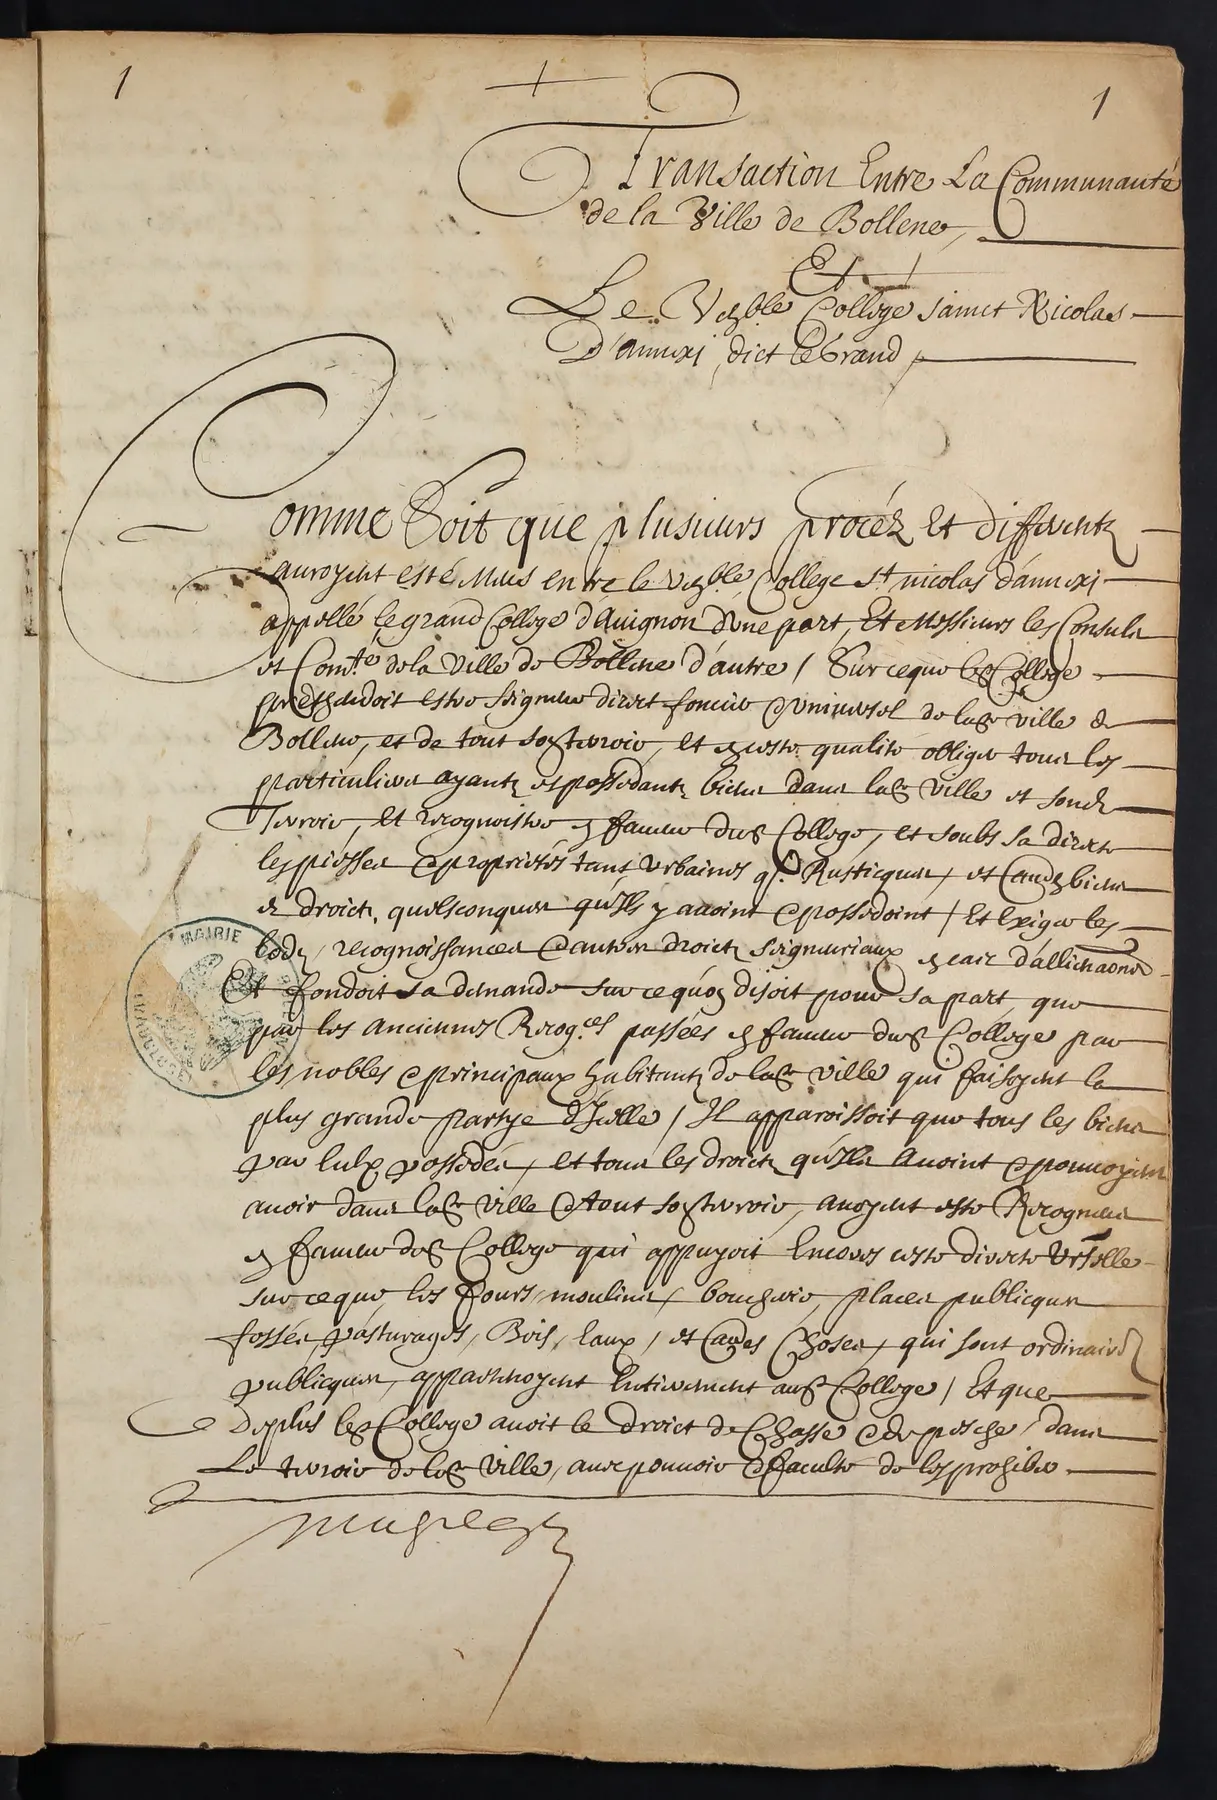 1
1
Transaction Entre La Communauté
de la Ville de Bollene,
Et
Le Venble College sainct Nicolas
D'annexi, dict le Grand,
Comme Soit que plusieurs procéz Et differentz
auroyent esté Meus entre le Venble College St nicolas d'annexi
appellé le grand College d'Auignon d'une part, Et Messieurs les Consulz
et Comté de la Ville de Bollene d'autre / Sur ce que led College
prethendoit estre seigneur direct foncier & vniuersel de lad ville de
Bollene, et de tout son terroir, et en ceste qualité obliger tous les
particuliers ayantz et possedantz biens dans lad Ville et sond
Terroir, et recognoistre en faueur dud College, et soubs sa directe
les piesses & proprietés tant Vrbaines q. Rusticques, et Caudz biens
& droictz quelsconques qu'Ils y auoint & possedoint / Et Exiger les
lodz, recognoissances & autres droictz seigneuriaux en cas d'allienaons
Et fondoit sa demande sur ce qu'on disoit pour sa part, que
par les anciennes Recog.ces passées en faueur dud College par
les nobles & principaux habitantz de lad ville qui faisoyent la
plus grande partye d'Icelle / Il apparoissoit que tous les biens
par eulx possedés, et tous les droictz qu'Ils Auoint & pouuoyent
auoir dans lad Ville & tout son terroir, auoyent esté Recogneus
en faueur dud College qui appuyoit Encores ceste directe Vrselle
sur ce que les fours, moulins, boucherie, places publicques
fossés, pasturages, Bois, Eaux, et Caues Choses, qui sont ordinairt
publicques, appartenoyent Entierement aud College / Et que
de plus led College auoit le droict de Chasse & de pesche, dans
Le terroir de lad Ville, auec pouuoir & faculté de les prohiber
MAIRIE